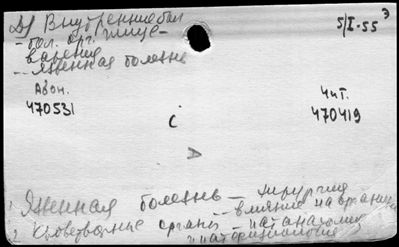 Д) Внутренние бол
- бол. орг. пище-
варения
- Язвенная болезнь
5/I-55 Э
Абон.
470531
Чит.
470419
с
А
1 Язвенная болезнь – хирургия
– влияние на организм
2 Кроветворные органы – патанатомия